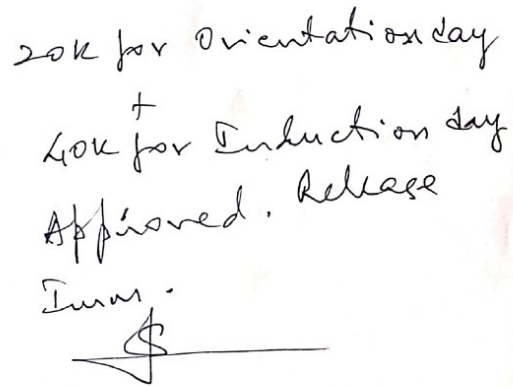 20K for Orientation day
+
40K for Induction day
Approved. Release